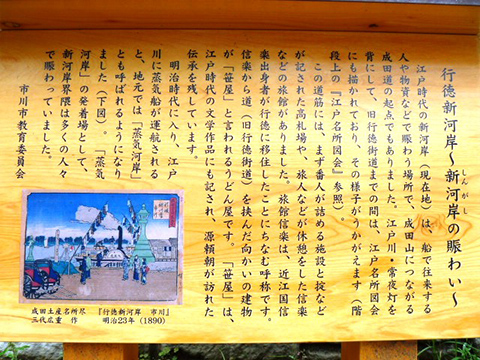 行徳新河岸～新河岸の賑わい～
しんがし
江戸時代の新河岸（現在地）は、船で往来する
人や物資などで賑わう場所で、成田山につながる
成田道の起点でもありました。江戸川・常夜灯を
背にして、旧行徳街道までの間は、江戸名所図会
にも描かれており、その様子がうかがえます（階
段上の『江戸名所図会』参照）。
この道筋には、まず番人が詰める施設と掟など
が記された高札場や、旅人などが休憩をした信楽
などの旅館がありました。旅館信楽は、近江国信
楽出身者が行徳に移住したことにちなむ呼称です。
信楽から道（旧行徳街道）を挟んだ向かいの建物
が「笹屋」と言われるうどん屋です。「笹屋」は、
江戸時代の文学作品にも記され、源頼朝が訪れた
伝承を残しています。
明治時代に入り、江戸
川に蒸気船が運航される
と、地元では「蒸気河岸」
とも呼ばれるようになり
ました（下図）。「蒸気
河岸」の発着場として、
新河岸界隈は多くの人々
で賑わっていました。
市川市教育委員会
成田土産名所尽
三代広重 作
『行徳新河岸 市川』
明治23年（1890）